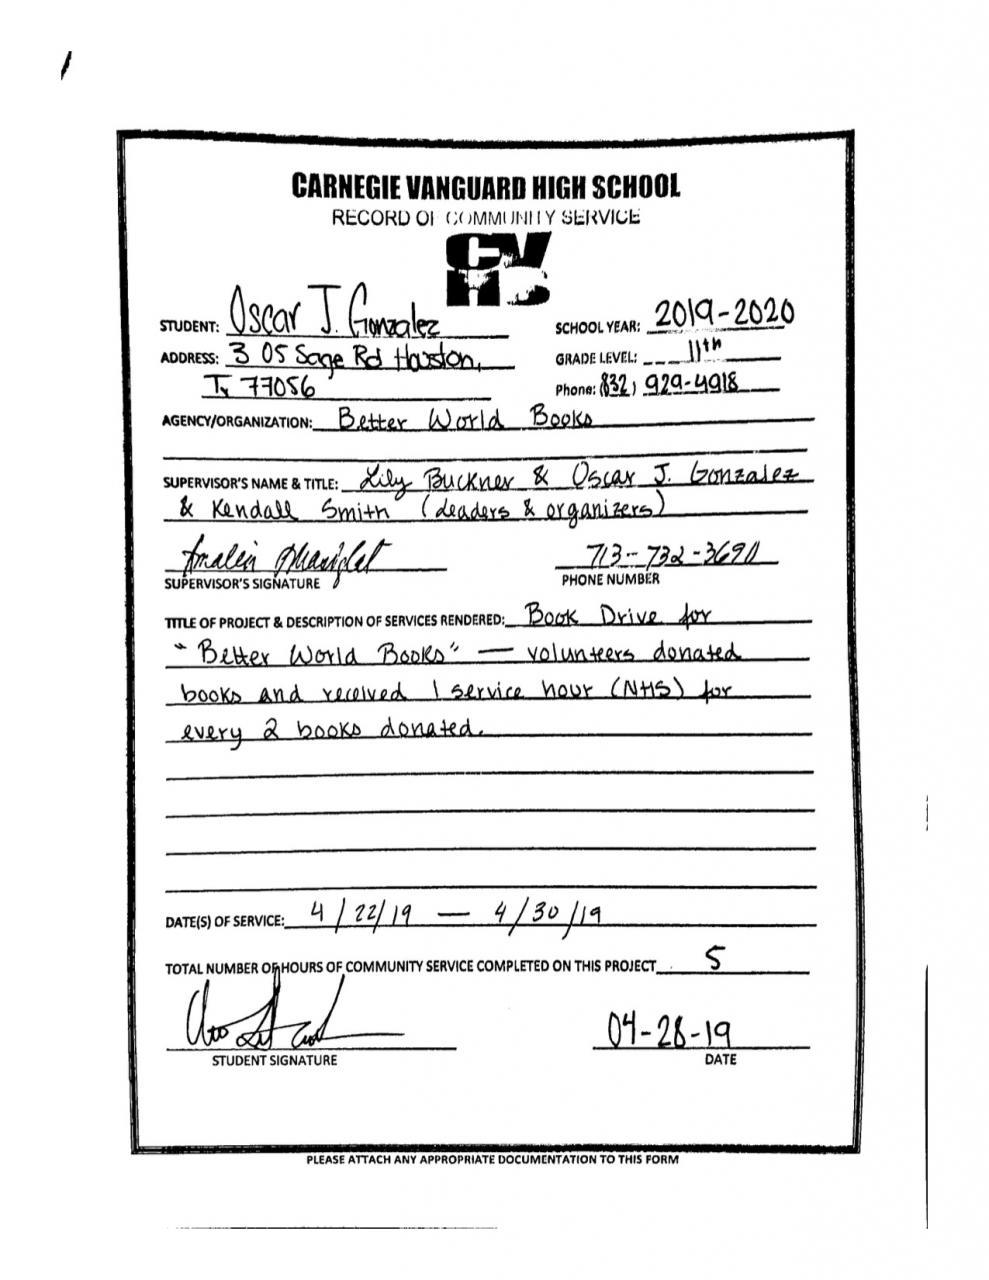 CARNEGIE VANGUARD HIGH SCHOOL
RECORD OF COMMUNITY SERVICE
CV
HS
STUDENT: Oscar J. Gonzalez
SCHOOL YEAR: 2019-2020
ADDRESS: 3 05 Sage Rd Houston,
GRADE LEVEL: 11th
Tx 77056
Phone: (832) 929-4918
AGENCY/ORGANIZATION: Better World Books
SUPERVISOR'S NAME & TITLE: Lily Buckner & Oscar J. Gonzalez
& Kendall Smith (leaders & organizers)
713-732-3690
SUPERVISOR'S SIGNATURE
PHONE NUMBER
TITLE OF PROJECT & DESCRIPTION OF SERVICES RENDERED: Book Drive for
"Better World Books" — volunteers donated
books and received 1 service hour (NHS) for
every 2 books donated.
DATE(S) OF SERVICE: 4/22/19 — 4/30/19
TOTAL NUMBER OF HOURS OF COMMUNITY SERVICE COMPLETED ON THIS PROJECT 5
04-28-19
STUDENT SIGNATURE
DATE
PLEASE ATTACH ANY APPROPRIATE DOCUMENTATION TO THIS FORM